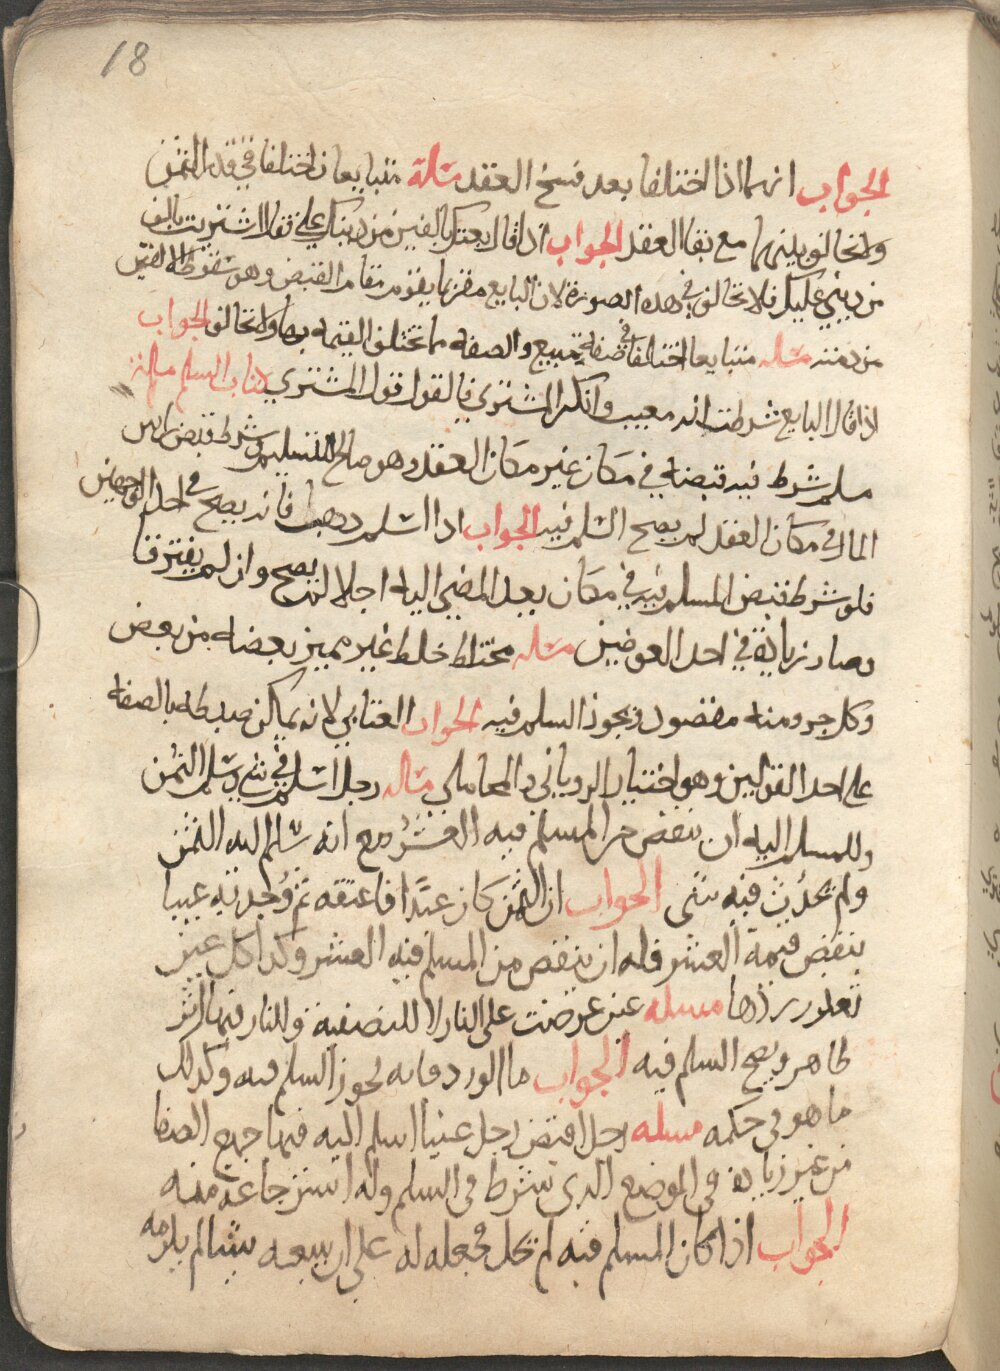 18
الجواب انهما اذا اختلفا بعد فسخ العقد مسالة متبايعان اختلفا في قدر الثمن
ولا تحالف بينهما مع بقا العقد الجواب اذا قال بعتك بالفين من دينك علي فقال اشتريت بالف
من ديني عليك فلا تحالف في هذه الصورة لان البايع مقر بما يقوم مقام القبض وهو سقوط الالفين
من ذمته مساله متبايعا اختلفا في صفة مبيع والصفه مما تختلف القيمه بها ولا تحالف الجواب
اذا قال البايع شرطت انه معيب وانكر المشتري فالقول قول المشتري كتاب السلم مسالة
سلم شرط فيه قبضه في مكان غير مكان العقد وهو صالح للتسليم وشرط قبض راس
المال في مكان العقد لم يصح السلم فيه الجواب اذا اسلم دهب فانه يصح في احد الوجهين
فلو شرط قبض المسلم فيه في مكان بعد المضي اليه اجلا لم يصح وان لم يفترقا
وصار زيادة في احد العوضين مساله مختلط خلط غير مميز بعضه من بعض
وكل جزو منه مقصود ويجوز السلم فيه الجواب العتابي لانه يمكن ضبطه بالصفه
على احد القولين وهو اختيار الروياني والمحاملي مساله رجل اسلم في شي وسلم الثمن
وللمسلم اليه ان ينقص من المسلم فيه العشر مع انه سلم اليه الثمن
ولم يحدث فيه شي الجواب ان الثمن كان عبدًا فاعتقه ثم وجد به عيبا
ينقص قيمة العشر فله ان ينقص من المسلم فيه العشر وكذا كل عين
تعذر ردها مسله عين عرضت على النار لا للتصفية وللنار فيها اثر
ظاهر ويصح السلم فيه الجواب ما الورد فانه يجوز السلم فيه وكذلك
ما هو في حكمه مسله رجل اقبض رجل عينا اسلم اليه فيها جميع الصفا
من غير زيادة في الموضع الذي شرط في السلم وله استرجاعه منه
الجواب اذا كان المسلم فيه لم يحل فعجله له على ان يبيعه شيا لم يلزمه